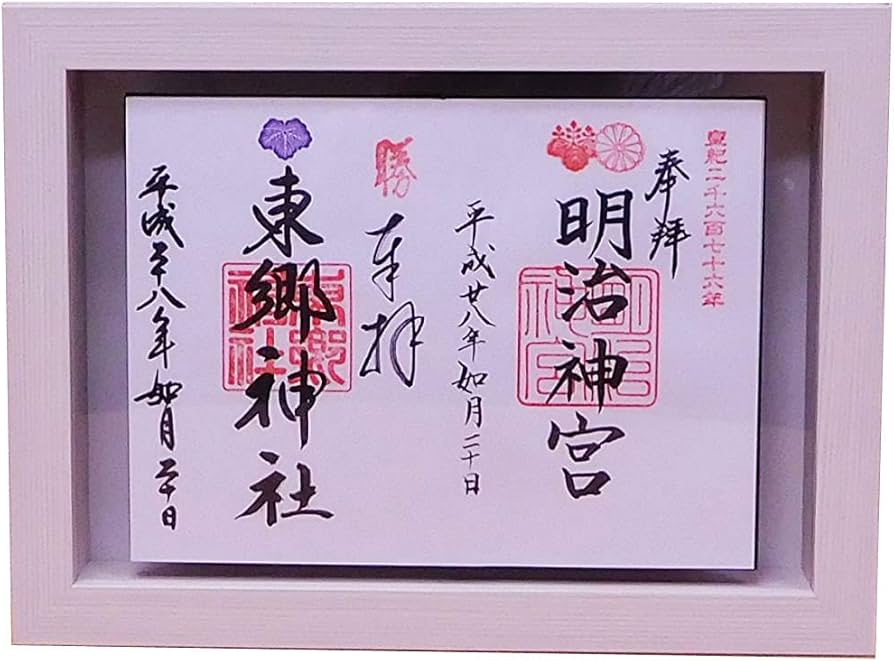 皇紀二千六百七十六年
奉拜
明治神宮
明治神宮
平成廿八年如月二十日
勝
奉拝
東郷神社
東郷神社
平成二十八年如月二十日